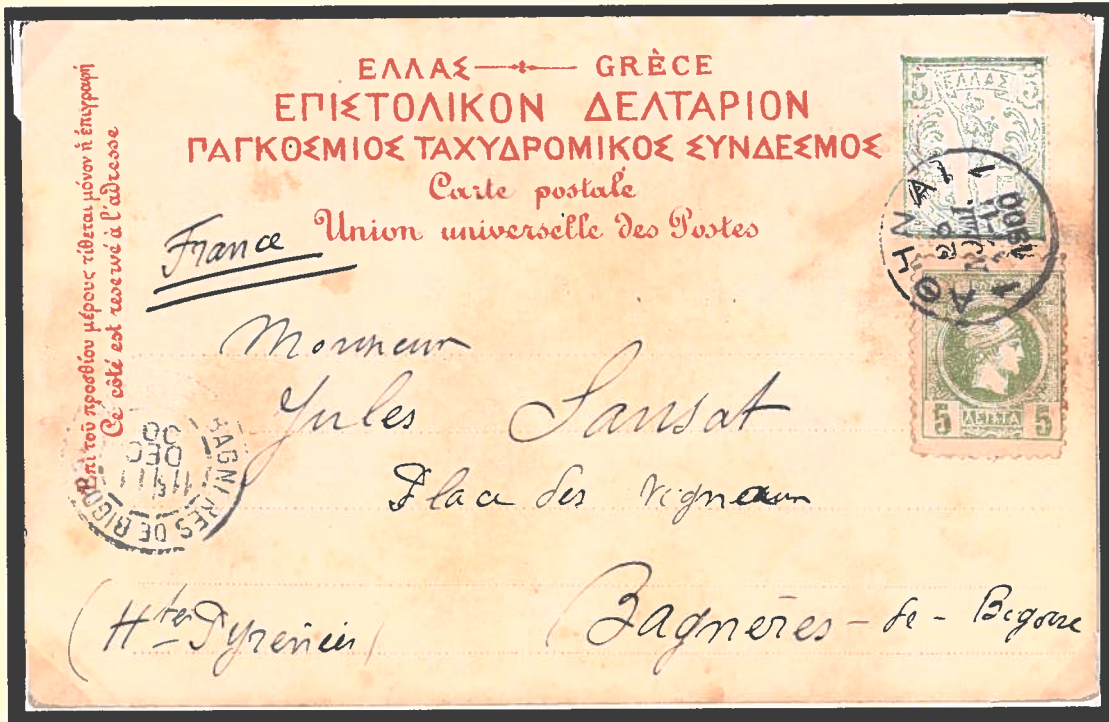 ΕΛΛΑΣ GRÈCE
ΕΠΙΣΤΟΛΙΚΟΝ ΔΕΛΤΑΡΙΟΝ
ΠΑΓΚΟΣΜΙΟΣ ΤΑΧΥΔΡΟΜΙΚΟΣ ΣΥΝΔΕΣΜΟΣ
Carte postale
Union universelle des Postes
Ἐπὶ τοῦ προσθίου μέρους τίθεται μόνον ἡ ἐπιγραφή
Ce côté est reservé à l'adresse
5 ΕΛΛΑΣ 5
ΑΘΗΝΑΙ
1900
5 ΛΕΠΤΑ 5
France
Monsieur
Jules Sansat
Place des Vigneaux
Bagnères-de-Bigorre
(Htes Pyrénées)
BAGNERES DE BIGOR
DEC
00